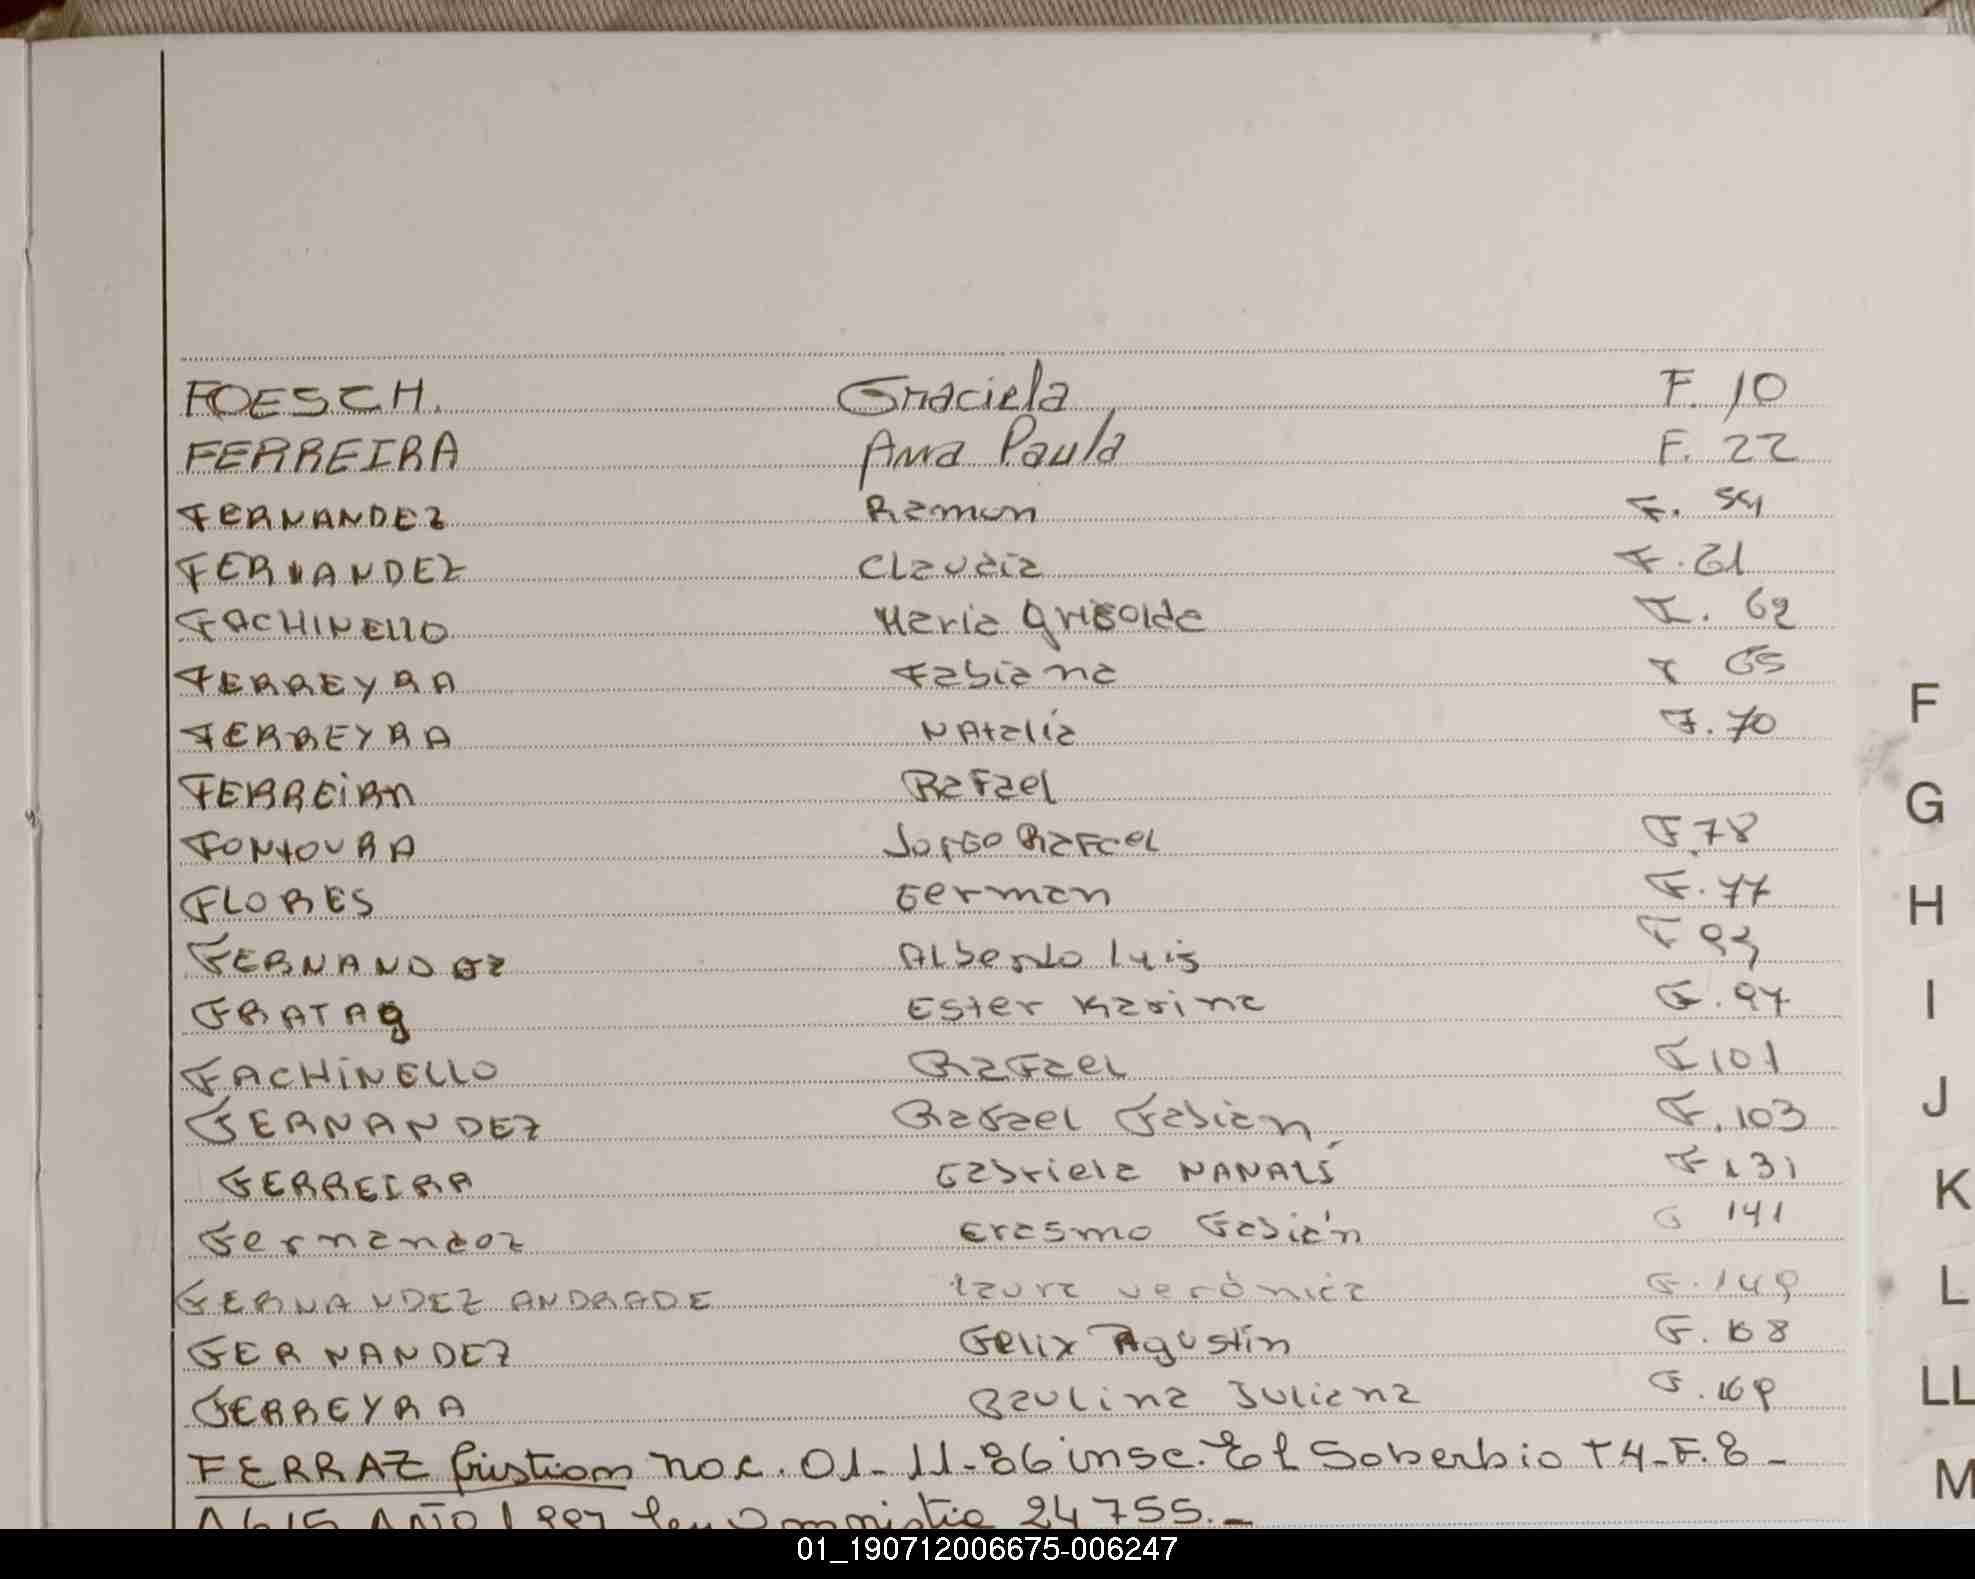 FOESCH. Graciela F. 10
FERREIRA Ana Paula F. 22
FERNANDEZ Ramon F. 54
FERNANDEZ Claudia F. 61
FACHINELLO Maria Griselda F. 62
FERREYRA Fabiana F 65
FERREYRA NAtalia F. 70
FERREiRA Rafael
FONtOURA Jorge Rafael F. 78
FLORES German F. 77
FERNANDEZ Alberto Luis F 93
FRATAg Ester Karina F. 97
FACHiNELLO Rafael F 101
FERNANDEZ Rafael Fabian, F. 103
FERREIRA Gabriela NANALÍ F 131
Fernandez Erasmo Fabián F 141
FERNANDEZ ANDRADE laura verónica F. 149
FERNANDEZ Felix Agustín F. 168
FERREYRA Paulina Juliana F. 169
FERRAZ Cristian nac. 01-11-86 insc. El Soberbio T4-F.8-
A615 AÑO 1997 Ley Amnistia 24755.-
F
G
H
I
J
K
L
LL
M
01_190712006675-006247